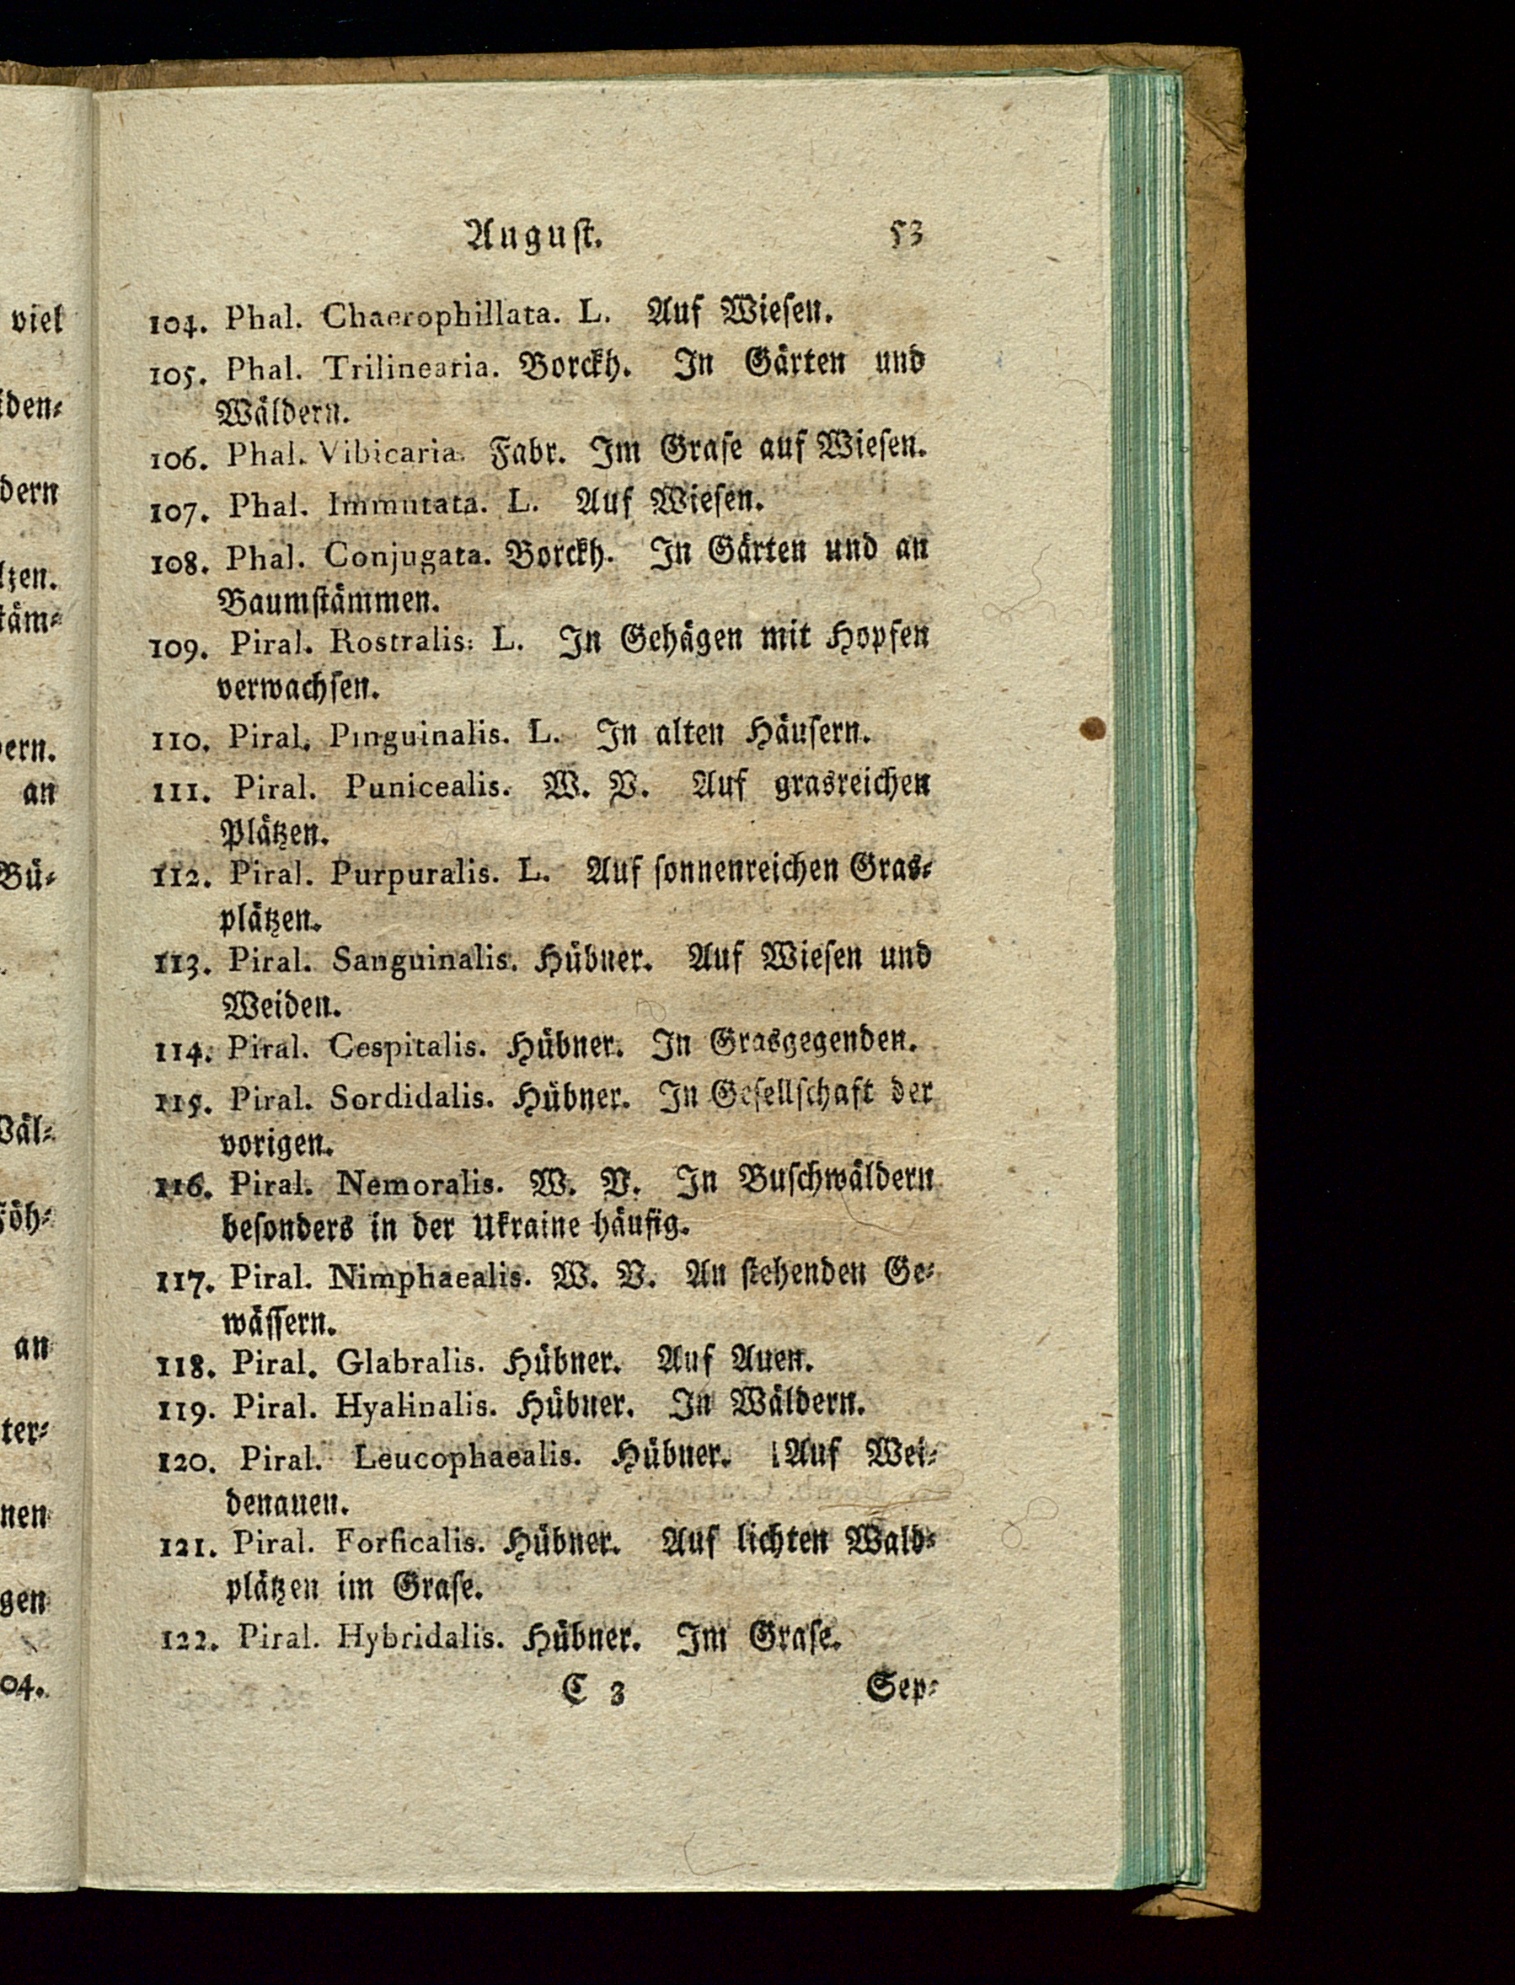 August. 53
104. Phal. Chaerophillata. L. Auf Wieſen.
105. Phal. Trilinearia. Borckh. In Gärten und
Wäldern.
106. Phal. Vibicaria. Fabr. Im Graſe auf Wieſen.
107. Phal. Immutata. L. Auf Wieſen.
108. Phal. Conjugata. Borckh. In Gärten und an
Baumſtämmen.
109. Piral. Rostralis. L. In Gehägen mit Hopfen
verwachſen.
110. Piral. Pinguinalis. L. In alten Häuſern.
111. Piral. Punicealis. W. V. Auf grasreichen
Plätzen.
112. Piral. Purpuralis. L. Auf ſonnenreichen Gras-
plätzen.
113. Piral. Sanguinalis. Hübner. Auf Wieſen und
Weiden.
114. Piral. Cespitalis. Hübner. In Grasgegenden.
115. Piral. Sordidalis. Hübner. In Geſellſchaft der
vorigen.
116. Piral. Nemoralis. W. V. In Buſchwäldern
beſonders in der Ukraine häufig.
117. Piral. Nimphaealis. W. V. An ſtehenden Ge-
wäſſern.
118. Piral. Glabralis. Hübner. Auf Auen.
119. Piral. Hyalinalis. Hübner. In Wäldern.
120. Piral. Leucophaealis. Hübner. Auf Wei-
denauen.
121. Piral. Forficalis. Hübner. Auf lichten Wald-
plätzen im Graſe.
122. Piral. Hybridalis. Hübner. Im Graſe.
C 3 Sep-